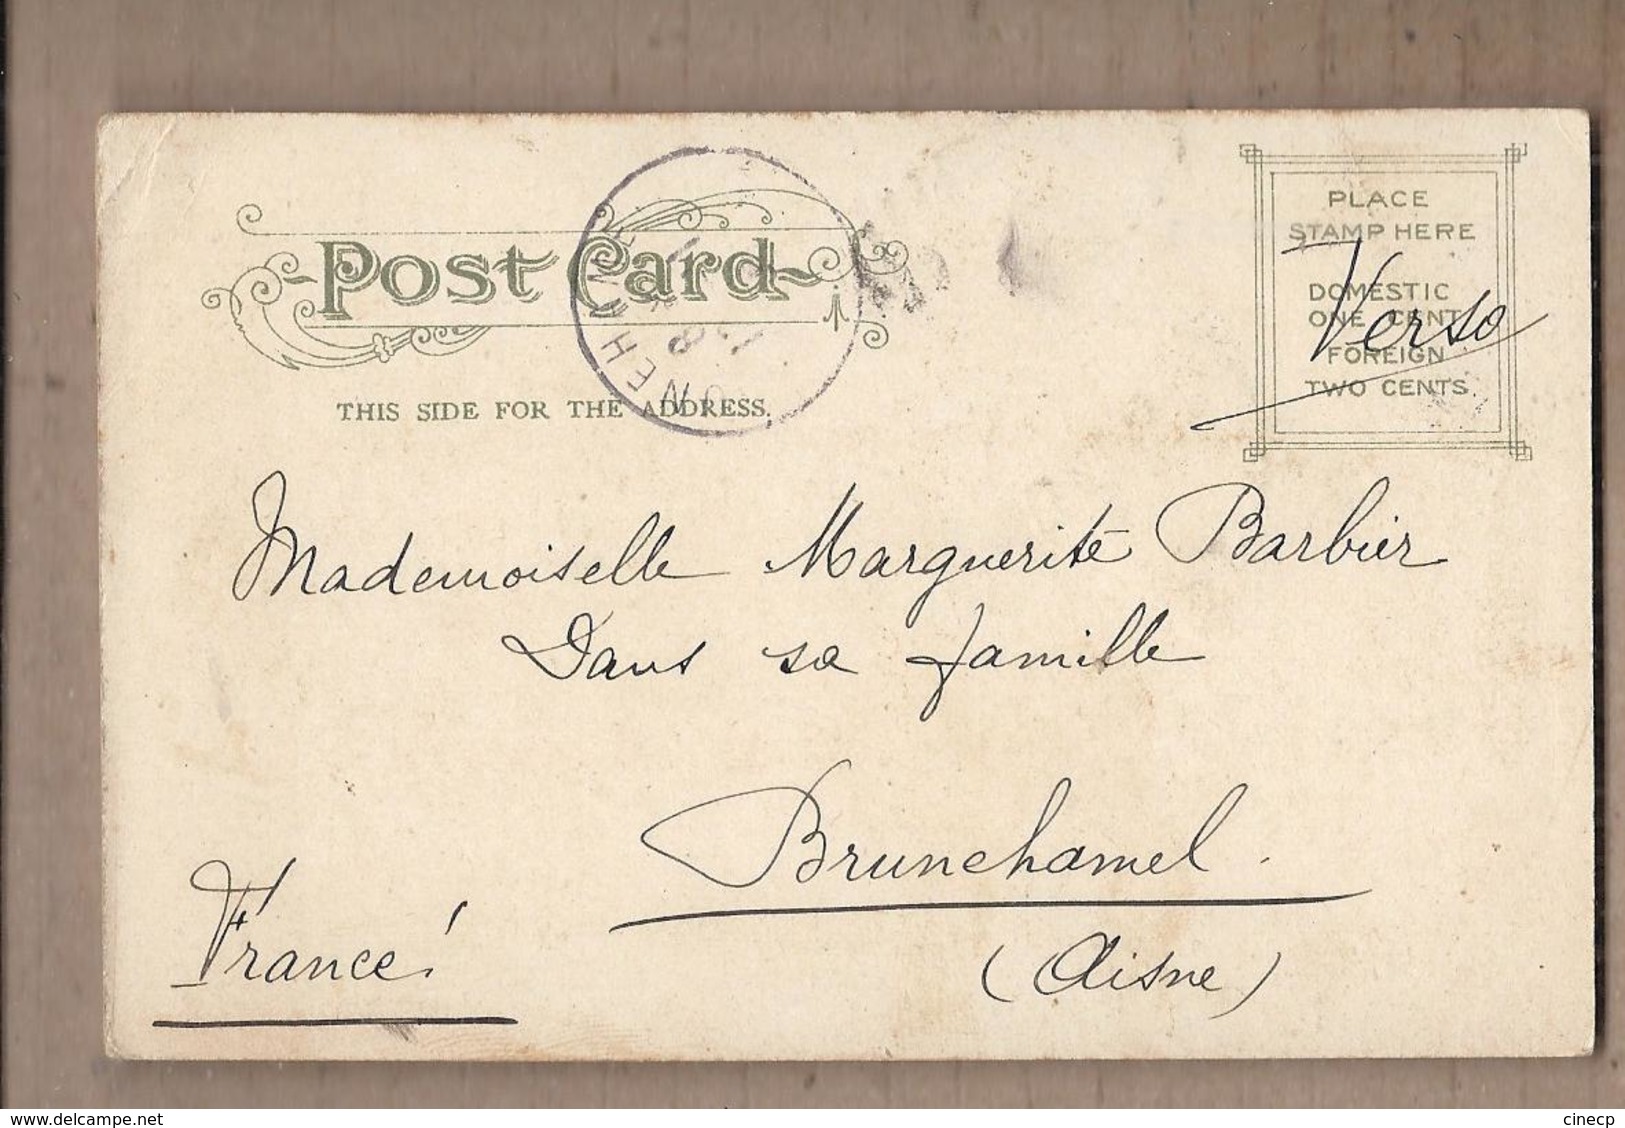 PLACE
STAMP HERE
DOMESTIC
ONE CENT
FOREIGN
TWO CENTS.
Verso
Post Card
THIS SIDE FOR THE ADDRESS.
Mademoiselle Marguerite Barbier
Dans sa famille
Brunehamel.
(Aisne)
France!
http://www.delcampe.net
cinecp